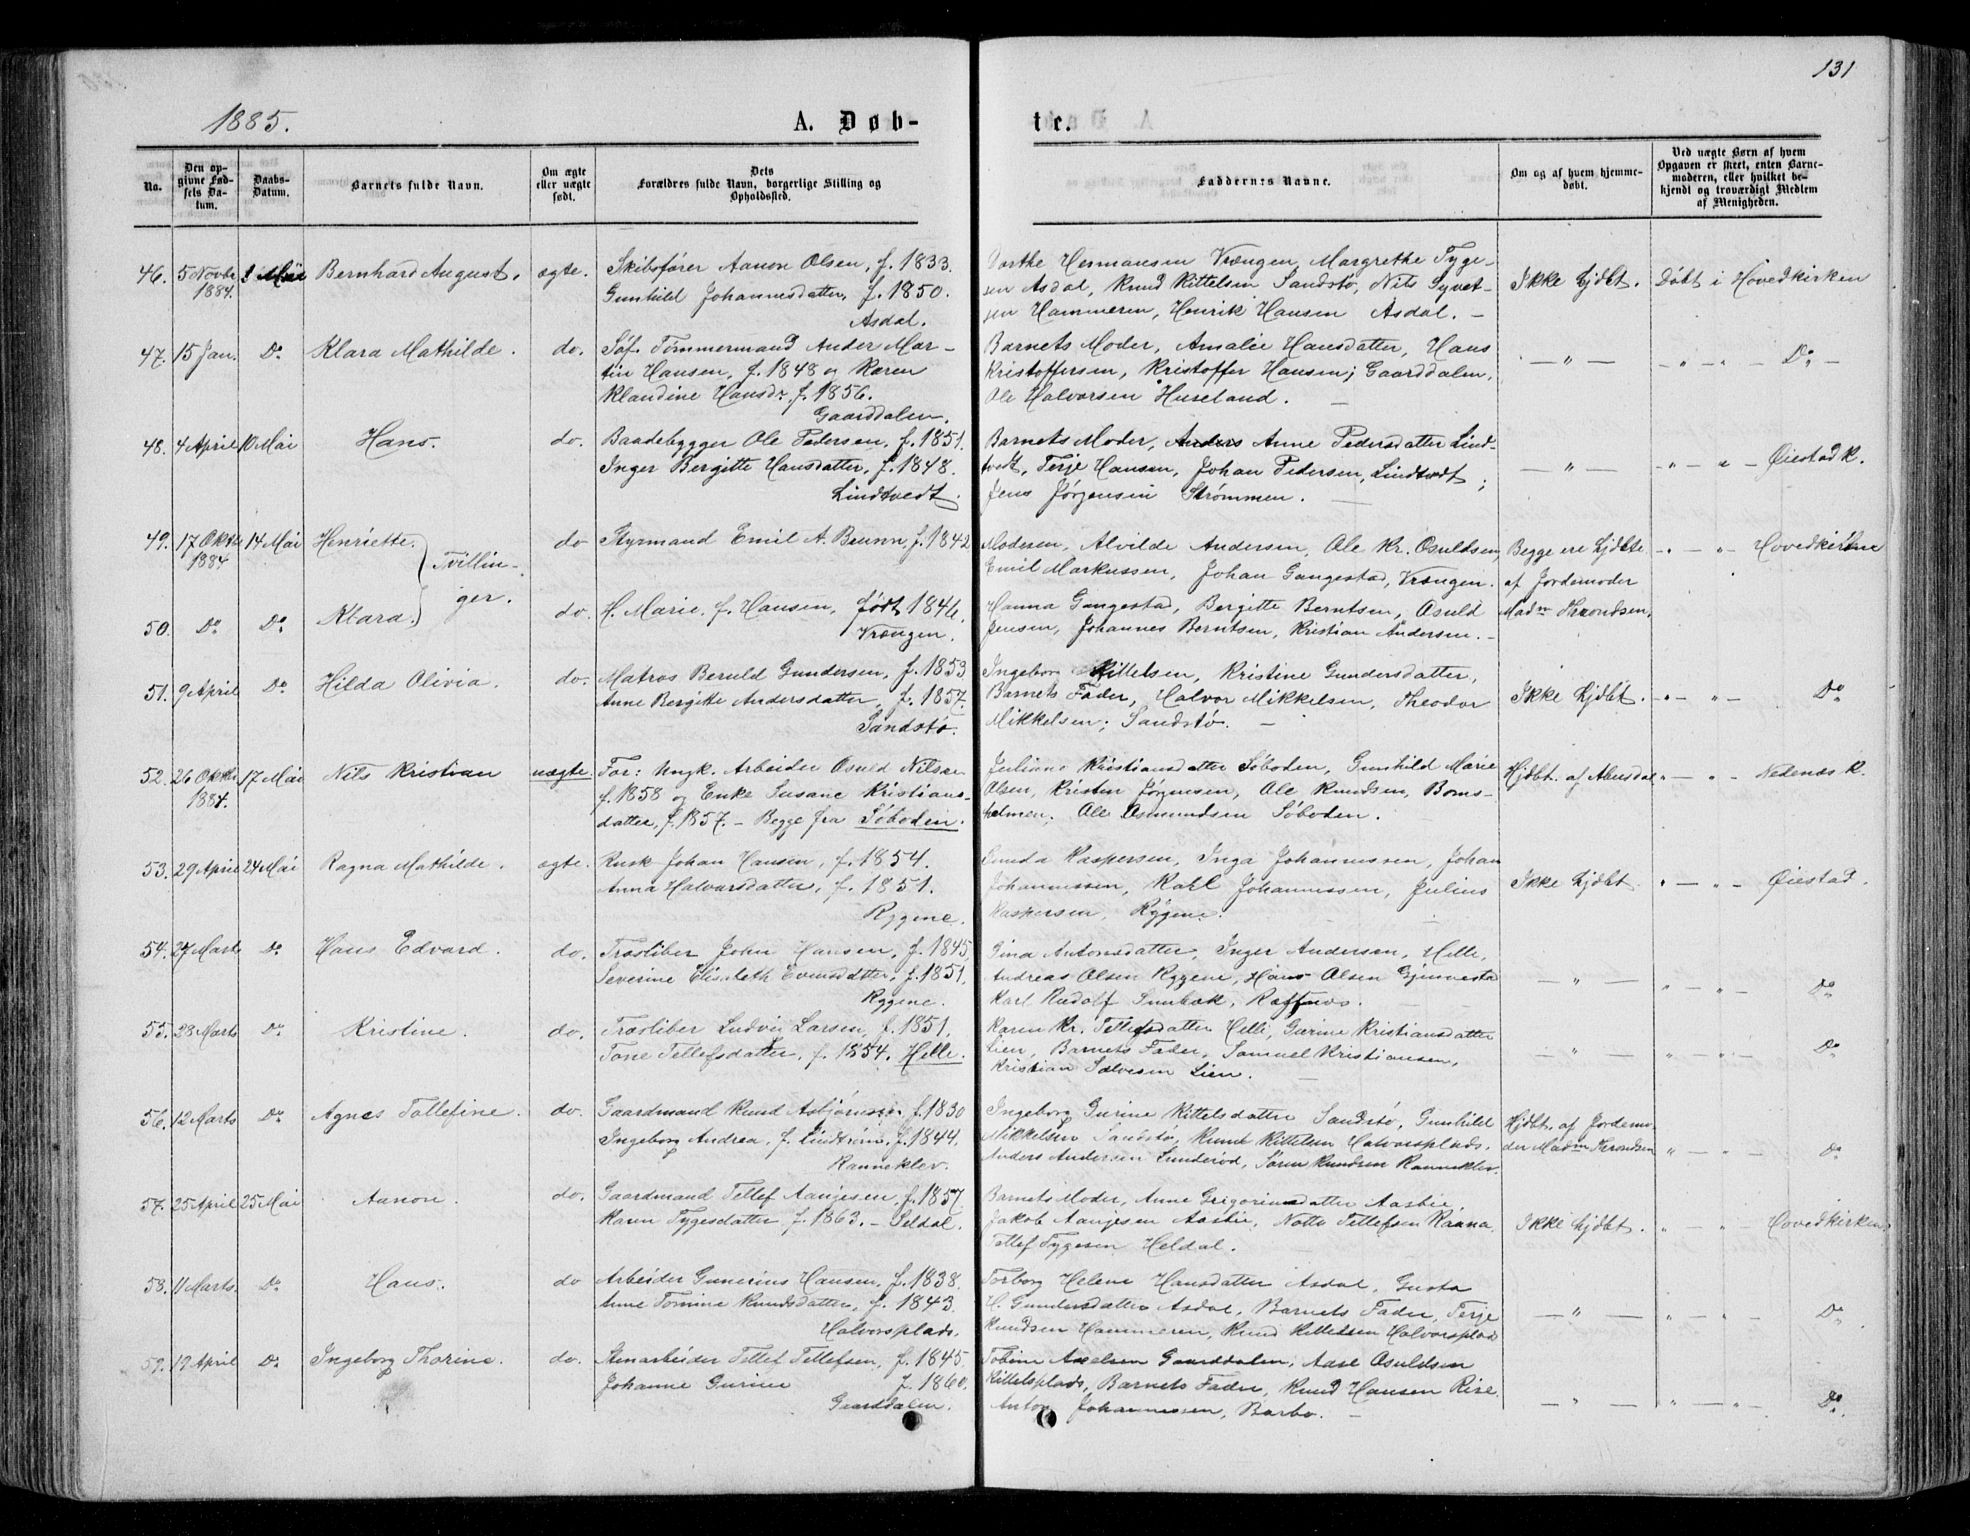 131
1885.
A. Døb-
te.
No.
Den opgivne Fødsels Datum.
Daabs-Datum.
Barnets fulde Navn.
Om ægte eller uægte født.
Dets Forældres fulde Navn, borgerlige Stilling og Opholdssted.
Faddernes Navne.
Om og af hvem hjemmedøbt.
Ved uægte Børn af hvem Opgaven er skeet, enten Barnemoderen, eller hvilket bekjendt og troværdigt Medlem af Menigheden.
46. 5 Novbr 1884. Mai Bernhard August. ægte. Skibsfører Aanon Olsen, f. 1833.
Gunhild Johannesdatter, f. 1850.
Asdal.
Dorthe Hermansen Vrængen, Margrethe Tyge-
sen Asdal, Knud Kittelsen Sandstø, Nils Syvert-
sen Hammeren, Henrik Hansen Asdal. -
Ikke hjdbt. Døbt i Hovedkirken
47. 15 Jan. Do Klara Mathilde. do. Søf. Tømmermand Ander Mar-
tin Hansen, f. 1848 og Karen
Klaudine Hansdr. f. 1856.
Gaarddalen.
Barnets Moder, Amalie Hansdatter, Hans
Kristoffersen, Kristoffer Hansen; Gaarddalen,
Ole Halvorsen Huseland.
— " — - " - " - Do -
48. 4 April 10 Mai Hans. do. Baadebygger Ole Pedersen, f. 1851.
Inger Bergitte Hansdatter, f. 1848.
Lindtvedt.
Barnets Moder, Anders Anne Pedersdatter Lind-
tvedt, Terje Hansen, Johan Pedersen, Lindtvedt;
Jens Jørgensen Strømmen.
— " — - " - " - Øiestad K.
49. 17 Oktbr 1884 14 Mai Henriette. Tvillin- do Styrmand Emil A. Brunn, f. 1842
Moderen, Alvilde Andersen, Ole Kr. Osuldsen,
Emil Markussen, Johan Gangestad, Vrængen.
Begge ere hjdbte
af Jordemoder
Madm Throndsen.
- " - " - Hovedkirkne
50. Do Do Klara. ger. do. H. Marie, f. Hansen, født 1846.
Vrængen.
Hanna Gangestad, Bergitte Berntsen, Osuld
Jensen, Johannes Berntsen, Kristian Andersen. -
51. 9 April Do Hilda Olivia. do. Matros Beruld Gundersen, f. 1853
Anne Bergitte Andersdatter, f. 1857.
Sandstø.
Ingeborg Kittelsen, Kristine Gundersdatter,
Barnets Fader, Halvor Mikkelsen, Theodor
Mikkelsen; Sandstø. -
Ikke hjdbt. - " - " - Do
52. 26 Oktbr 1884. 17 Mai Nils Kristian uægte. Far: Ungk. Arbeider Osuld Nilsen
f. 1858 og Enke Susane Kristians-
datter, f. 1857. - Begge fra Søboden.
Juliane Kristiansdatter Søboden, Gunhild Marie
Olsen, Kristen Jørgensen, Ole Knudsen, Boms-
holmen; Ole Osmundsen Søboden.
Hjdbt. af - " - Nedenæs K.
53. 29 April 24 Mai Ragna Mathilde. ægte. Rusk Johan Hansen, f. 1854.
Anna Halvorsdatter, f. 1851.
Rygene.
Kaspersen, Inga Johannessen, Johan
Johannessen, Karl Johannessen, Julius
Kaspersen, Rygene.
Ikke hjdbt. " - " - Øiestad.
54. 27 Marts Do Hans Edvard. do. Træsliber John Hansen, f. 1845,
Severine Elisabeth Evensdatter, f. 1851,
Rygene.
Gina Antonsdatter, Inger Andersen, Helle,
Andreas Olsen Rygene, Hans Olsen
Karl Rudolf
— " — " — " — Do
55. 28 Marts Do Kristine. do. Træsliber Ludvig Larsen, f. 1851.
Tone Tellefsdatter, f. 1854. Helle.
Karen Kr. Tellefsdatter Helle, Gurine Kristiansdatter
Lien, Barnets Fader, Samuel Kristiansen,
Kristian Salvesen Lien.
— " — " — " — Do
56. 12 Marts Do Agnes Tallefine. do. Gaardmand Knud Asbjørnsen f. 1830
Ingeborg Andrea, f. Lindtrøm, f. 1844.
Ranneklev.
Ingeborg Gurine Kittelsdatter Sandstø, Gunhild
Mikkelsen Sandstø, Knud Kittelsen Halvorsplads.
Anders Andersen Lunderød, Søren Knudsen Ranneklev.
Hjdbt. af Jordemo-
der Madm Throndsen
" — " — Do
57. 25 April 25 Mai Aanon. do. Gaardmand Tellef Aanjesen, f. 1857
Karen Tygesdatter, f. 1863. - Seldal.
Barnets Moder, Anne Grigoriusdatter Aasbie,
Jakob Aanjesen Aasbie, Notto Tellefsen Raana,
Tellef Tygesen Heldal.
Ikke hjdbt. " — " — Hovedkirken
58. 11 Marts. Do Hans. do Arbeider Gunerius Hansen, f. 1838.
Anne Tomine Knudsdatter, f. 1843.
Halvorsplads.
Torborg Helene Hansdatter Asdal, Gusta
H. Gundersdatter Asdal, Barnets Fader, Terje
Knudsen Hammeren, Knud Kittelsen Halvorsplad
— " — " — " — Do
59. 12 April Do Ingeborg Thorine. do. Stenarbeider Tellef Tellefsen, f. 1845.
Johanne Gurine f. 1860.
Gaarddalen.
Tobine Axelsen Gaarddalen, Aase Osuldsen
Kittelsplads, Barnets Fader, Knud Hansen Rise.
Anton Johannessen, Barbo. -
— " — " — " — Do